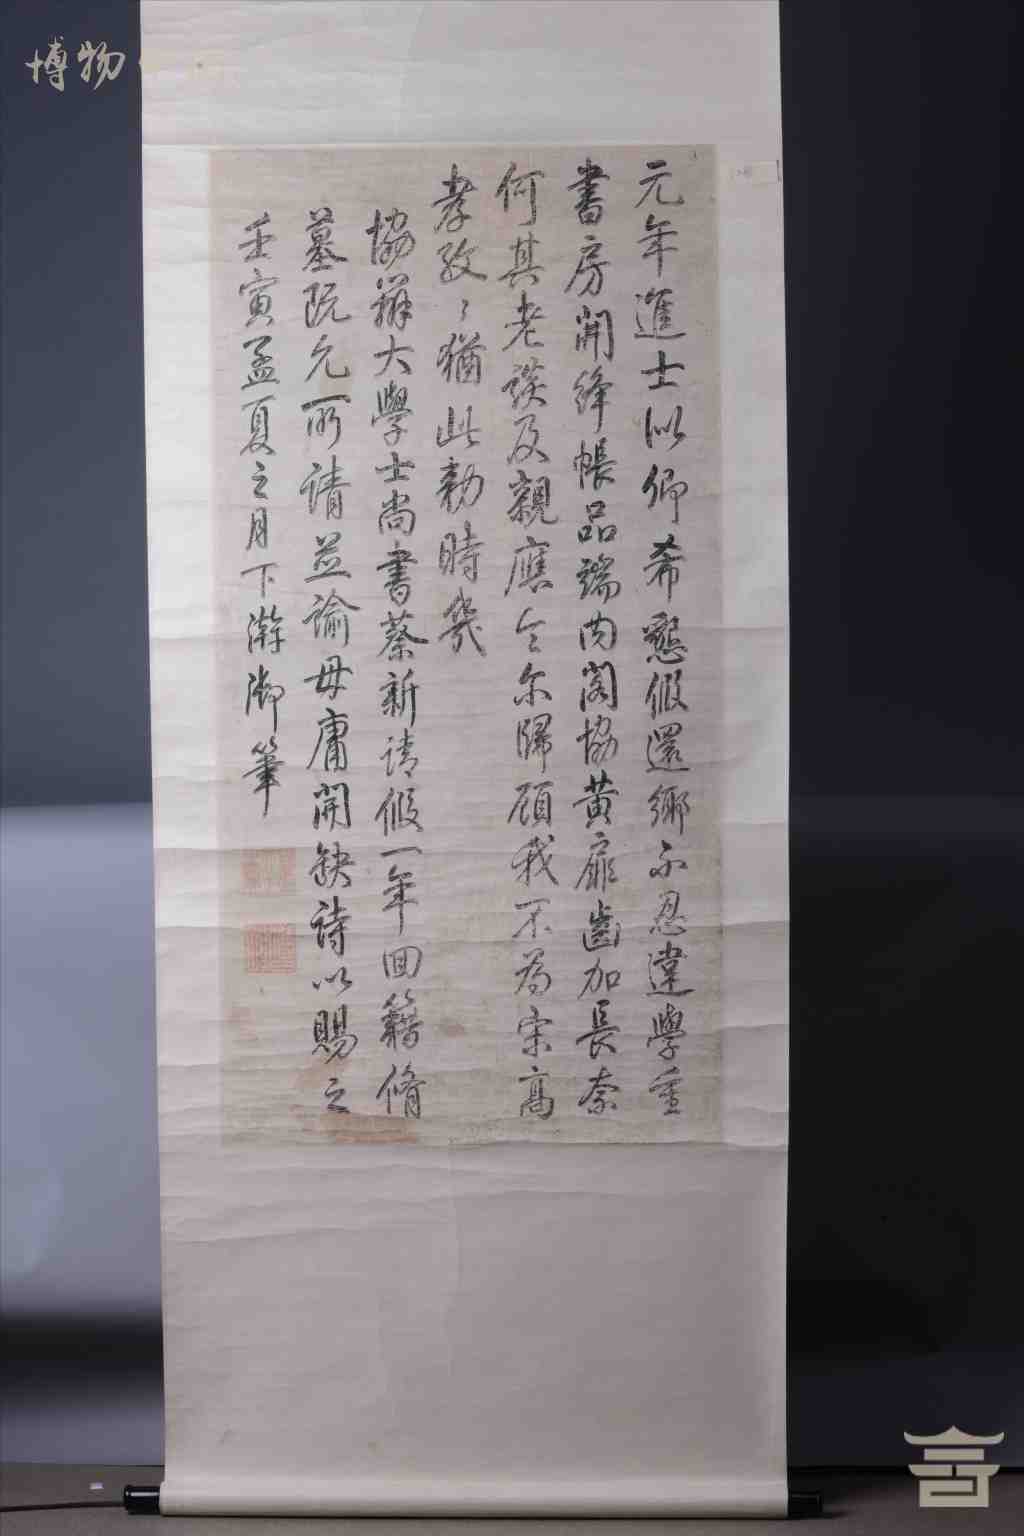 元年進士似卿希懇假還鄉不忍違學重
書房開絳帳品端內閣協黃扉齒加長奈
何其老談及親應令尔歸顧我不為宋高
孝孜〻猶此勑時幾
協辦大學士尚書蔡新請假一年回籍脩
墓既允所請並諭毋庸開缺詩以賜之
壬寅孟夏之月下澣御筆
博物